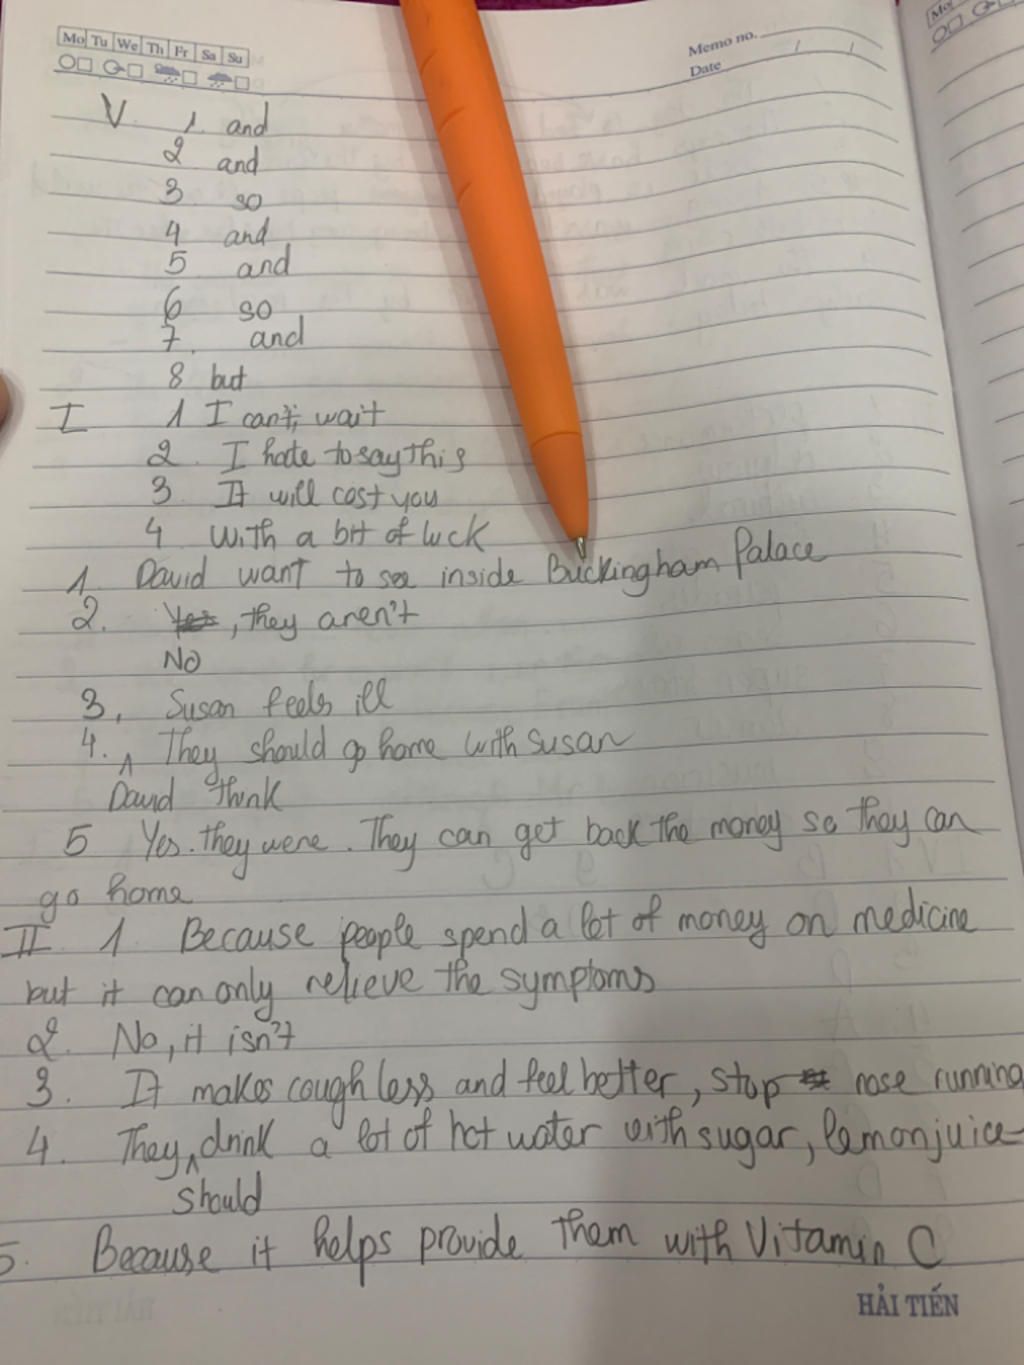 Mo Tu We Th Fr Sa Su
Memo no.
Date / /
V. 1. and
2 and
3 so
4 and
5 and
6 so
7. and
8 but
I 1 I can't wait
2. I hate to say this
3. It will cost you
4 With a bit of luck
1. David want to see inside Buckingham Palace
2. Yes, they aren't
No
3, Susan feels ill
4. They should go home with Susan
David think
5 Yes. they were. They can get back the money so they can
go home
II 1 Because people spend a lot of money on medicine
but it can only relieve the symptoms
2. No, it isn't
3. It makes cough less and feel better, stop nose running
4. They, drink a lot of hot water with sugar, lemon juice
should
5. Because it helps provide them with Vitamin C
HẢI TIẾN